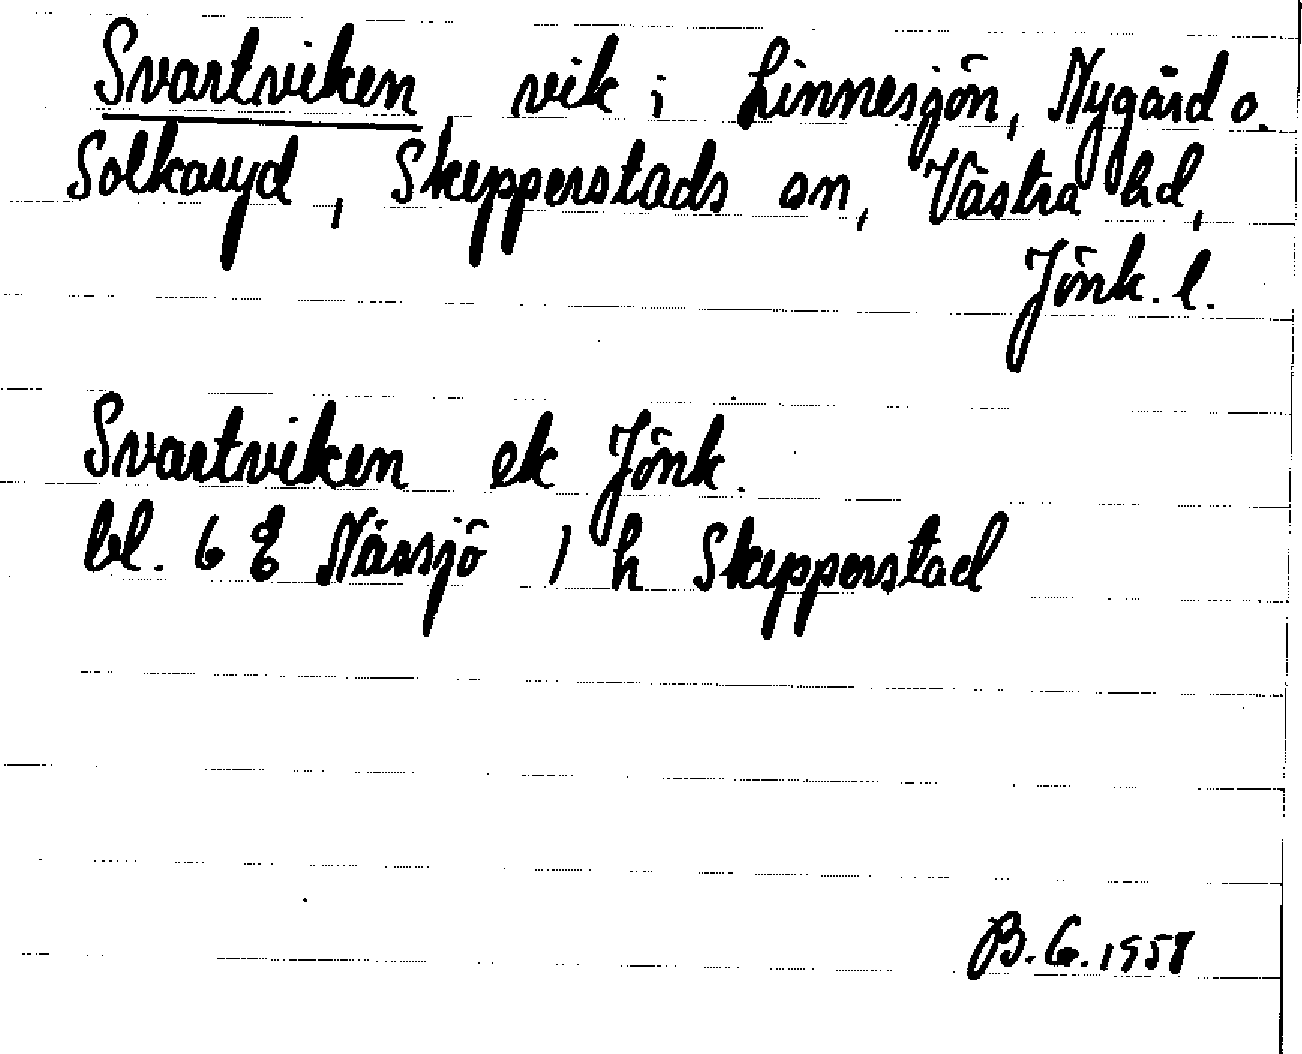 Svartviken vik i Linnesjön, Nygård o.
Solkaryd, Skepperstads sn, Västra hd,
Jönk. l.
Svartviken ek Jönk.
bl. 6 E Nässjö 1 h Skepperstad
B.G. 1958